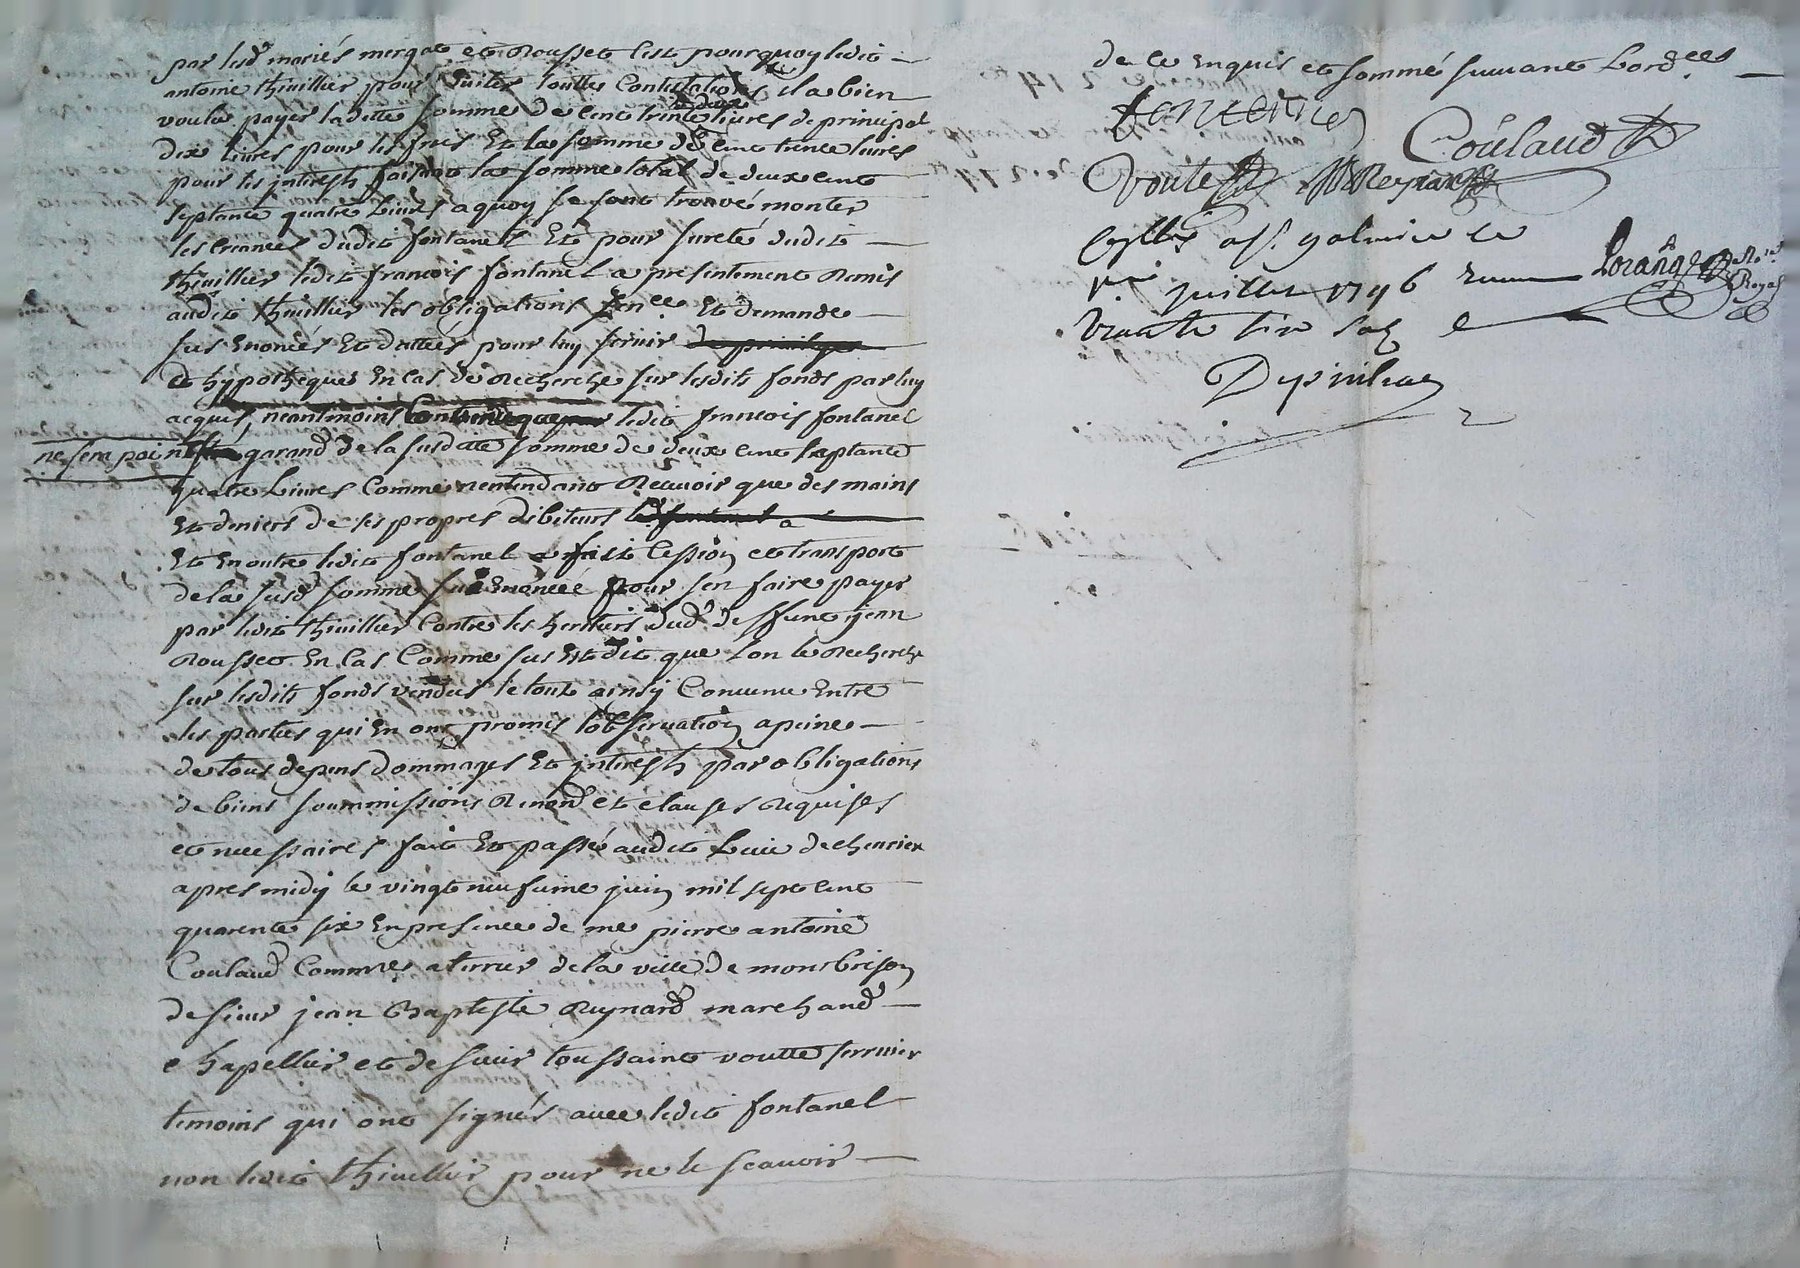 par lesd mariés mergat et Rousset Cest pourquoy ledit
antoine thiuillier pour Euiter touttes Contestations il a bien
voulu payer ladette somme de Cent trinte deux liures de principal
dix liures pour les frais Et la somme de Cent trente liures
pour les jnterests faisant la somme total de deux cent
septante quatre Liures a quoy se sont trouvé monter
les creances dudit fontanel Et pour sureté dudit
thiuillier ledit francois fontanel a presentement Remis
audit thiuillier les obligations sen.ce Et demande
sus Enoncés Et dattées pour luy seruir de priuileges
et hypotheques En cas de Recherche sur lesdits fonds par luy
acquis, neantmoins ledit francois fontanel
ne sera point garand de la susdatte somme de deux cent septante
quatre Liures Comme nentendant Receuoir que des mains
Et deniers de ses propres debiteurs
Et En outre ledit fontanel a fait Cession et transport
de la susd somme sus Enoncée pour sen faire payer
par ledit thiuillier Contre les heritiers dud deffunt jean
Rousset En Cas Comme sus Est dit que Lon le Recherche
sur lesdits fonds vendus le tout ainsy Conuenu Entre
les parties qui En ont promis lobseruation a peine
de tous depens dommages Et jnterests par obligations
de biens soummissions Renond et clauses Requises
et necessaires fait Et passé audit Lieu de cheurier
apres midy le vingt neufuime juin mil sept cent
quarente six En presence de me pierre antoine
Coulaud Commre a terrier de la ville de montbrison
de sieur jean Baptiste Reynard marchand
chapellier et de sieur toussaint voutte serrurier
temoins qui ont signés auec ledit fontanel
non ledit thiuillier pour ne le scauoir
de ce Enquis et sommé suiuant Lord.ces
fontanel
Coulaud
Voute Reynard
Collé a St. galmier le
1er juillet 1746
Lorange Nore Royal
trante six sols
Depinhac